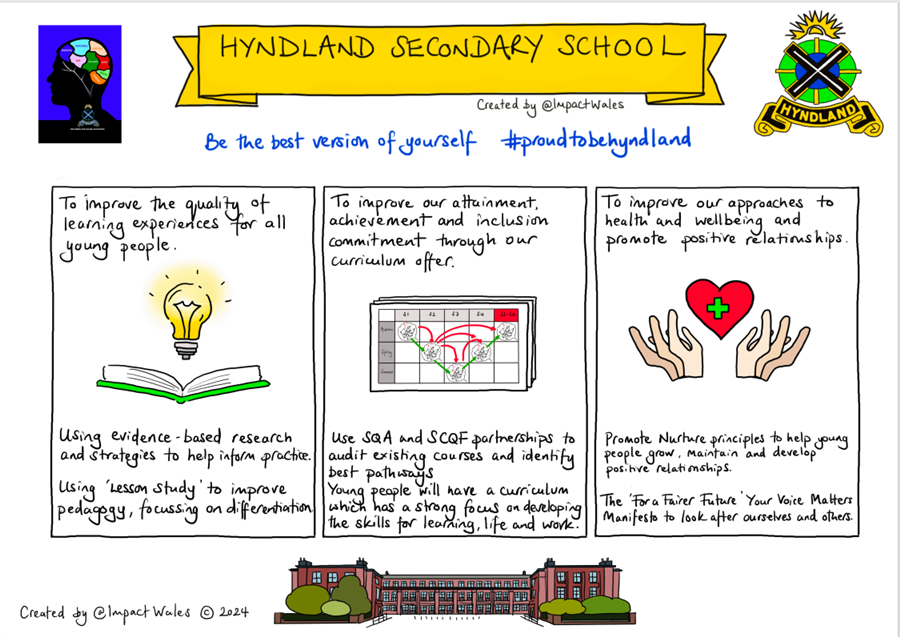 HYNDLAND SECONDARY SCHOOL
Created by @ImpactWales
HYNDLAND
Be the best version of yourself #proudtobehyndland
To improve the quality of
learning experiences for all
young people.
Using evidence-based research
and strategies to help inform practice.
Using 'Lesson Study' to improve
pedagogy, focussing on differentiation
To improve our attainment,
achievement and inclusion
commitment through our
curriculum offer.
S1 S2 S3 S4
Use SQA and SCQF partnerships to
audit existing courses and identify
best pathways
Young people will have a curriculum
which has a strong focus on developing
the skills for learning, life and work.
To improve our approaches to
health and wellbeing and
promote positive relationships.
Promote Nurture principles to help young
people grow, maintain and develop
positive relationships.
The 'For a Fairer Future' Your Voice Matters
Manifesto to look after ourselves and others.
Created by @ImpactWales © 2024